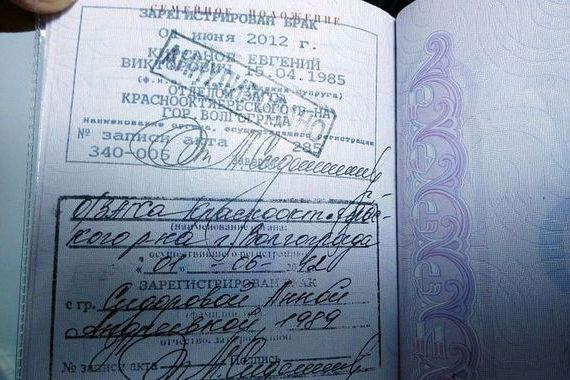 СЕМЕЙНОЕ ПОЛОЖЕНИЕ
ЗАРЕГИСТРИРОВАН БРАК
01 июня 2012 г.
ЕВГЕНИЙ
15.04.1985
супруга)
ОТДЕЛОМ ЗАГСА
КРАСНООКТЯБРЬСКОГО Р-НА
ГОР. ВОЛГОГРАДА
Наименование органа, осуществившего регистрации
№ записи акта 285
340-006
О/ЗАГСа Краснооктябрь-
кого р-на г. Волгограда
(наименование органа,
осуществившего регистрацию)
"01" - 06 - 2012
ЗАРЕГИСТРИРОВАН БРАК
с гр. Сидоровой Анной
Андреевной, 1989
отчество, дата рождения)
№ записи акта Подпись